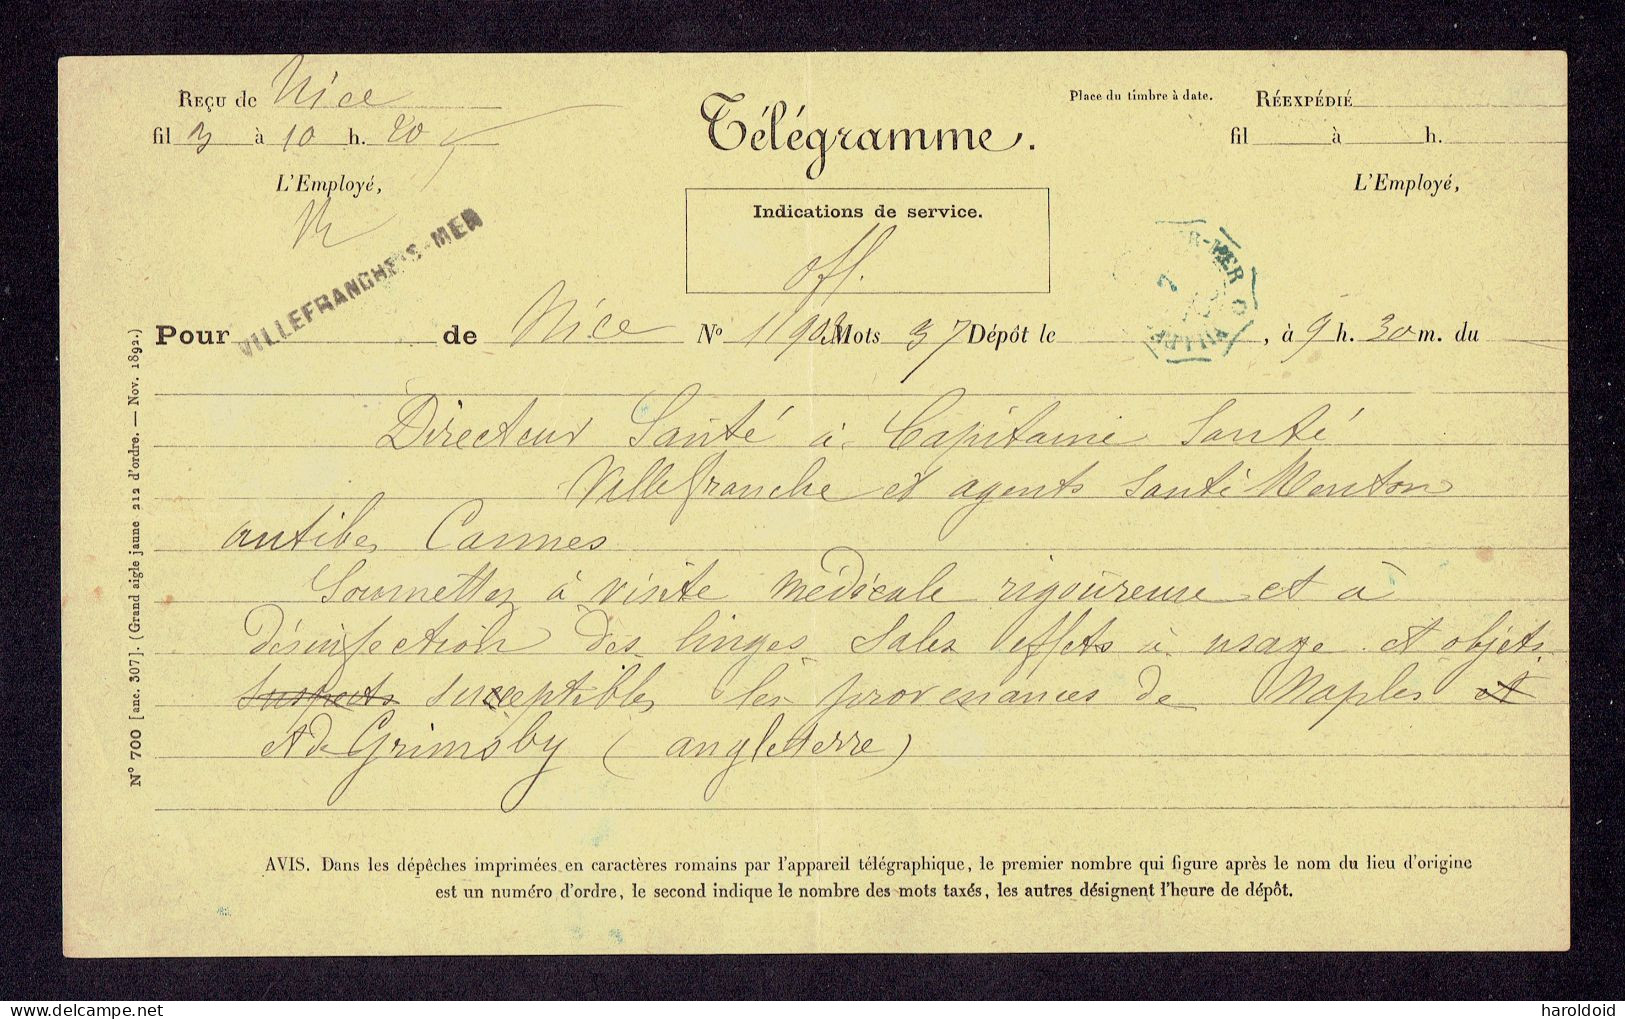 Reçu de Nice
fil 3 à 10 h. 20
L'Employé,
Télégramme.
Place du timbre à date.
Réexpédié
fil à h.
L'Employé,
Indications de service.
off.
VILLEFRANCHE-S-MER
R-MER
7
Pour de Nice N° 11903 Mots 37 Dépôt le , à 9 h. 30 m. du
Directeur Santé à Capitaine Santé
Villefranche et agents santé Menton
antibes Cannes
Soumettez à visite médicale rigoureuse et à
désinfection des linges sales effets à usage et objets
suspects susceptibles les provenances de Naples et
et de Grimsby (angleterre)
AVIS. Dans les dépêches imprimées en caractères romains par l'appareil télégraphique, le premier nombre qui figure après le nom du lieu d'origine
est un numéro d'ordre, le second indique le nombre des mots taxés, les autres désignent l'heure de dépôt.
N° 700 [anc. 307]. (Grand aigle jaune 212 d'ordre. — Nov. 1892.)
© delcampe.net
haroldoid